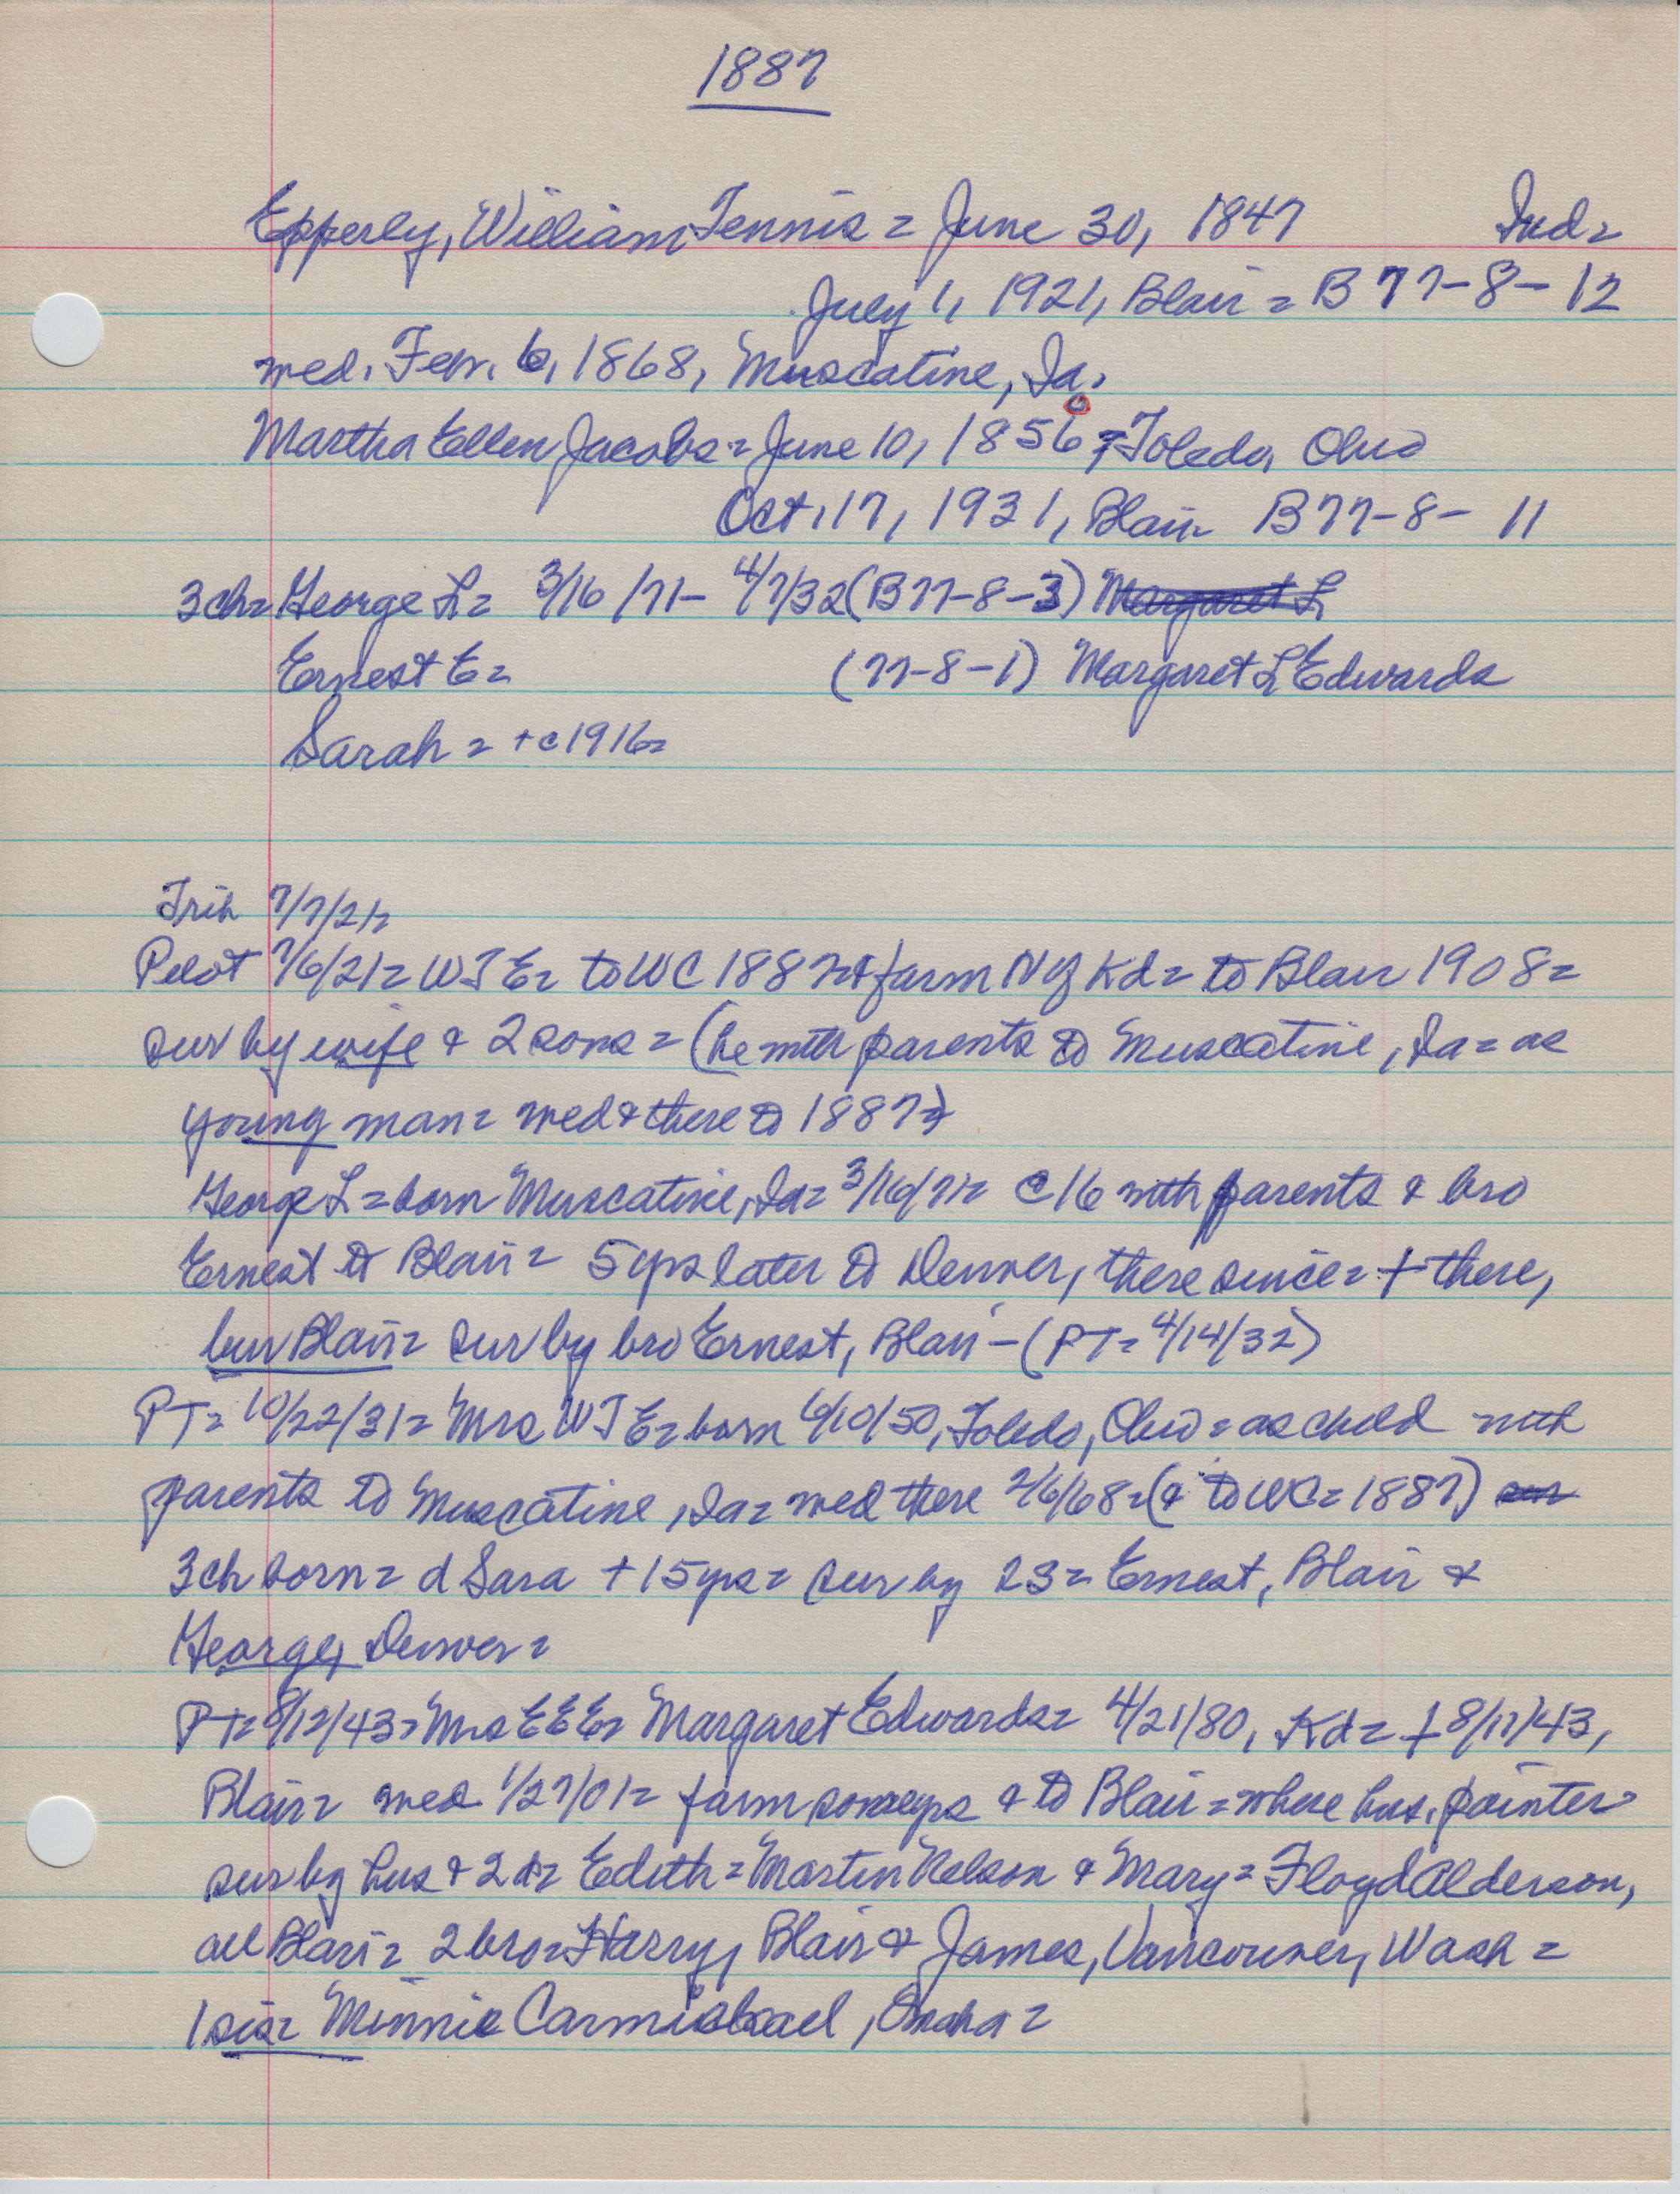 1887
Epperly, William Tennis = June 30, 1847 Ind =
July 1, 1921, Blair = B 77-8-12
wed. Febr. 6, 1868, Muscatine, Ia.
Martha Ellen Jacobs = June 10, 1856 = Toledo, Ohio
0
Oct. 17, 1931, Blair B 77-8-11
3ch = George L = 3/16/71 - 4/7/32 (B 77-8-3) Margaret L
Ernest E = (77-8-1) Margaret L Edwards
Sarah = + c 1916 =
Trib 7/7/21 =
Pilot 7/6/21 = WTE = to WC 1887 & farm N of Kd = to Blair 1908 =
sur by wife & 2 sons = (he with parents to Muscatine, Ia = as
young man = wed & there to 1887 =)
George L = born Muscatine, Ia = 3/16/71 = c 16 with parents & bro
Ernest to Blair = 5 yrs later to Denver, there since = + there,
bur Blair = sur by bro Ernest, Blair - (PT = 4/14/32)
PT = 10/22/31 = Mrs WTE = born 6/10/50, Toledo, Ohio = as child with
parents to Muscatine, Ia = wed there 2/6/68 = (& to WC = 1887) sur
3ch born = d Sara + 15 yrs = sur by 2s = Ernest, Blair &
George, Denver =
PT = 8/12/43 = Mrs EEE = Margaret Edwards = 4/21/80, Kd = + 8/11/43,
Blair = wed 1/27/01 = farm some yrs & to Blair = where hus. painter =
sur by hus & 2 d = Edith = Martin Nelson & Mary = Floyd Alderson,
all Blair = 2 bro = Harry, Blair & James, Vancouver, Wash =
1 sis = Minnie Carmichael, Omaha =